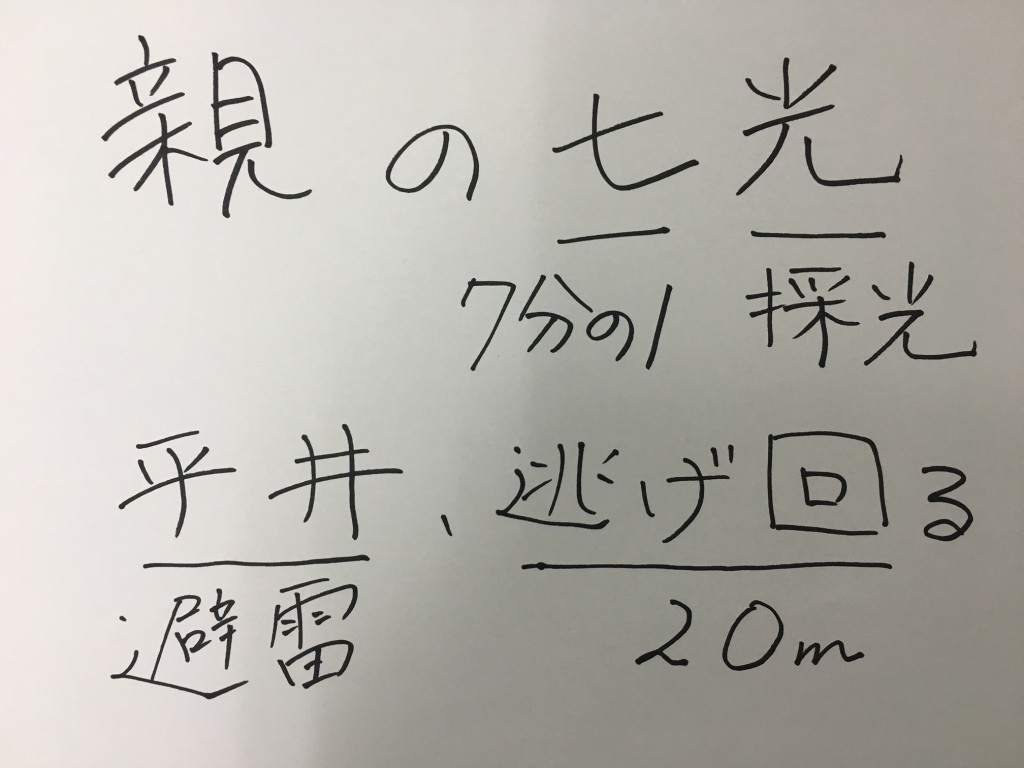 親の七光
7分の1 採光
平井、逃げ回る
避雷 20m